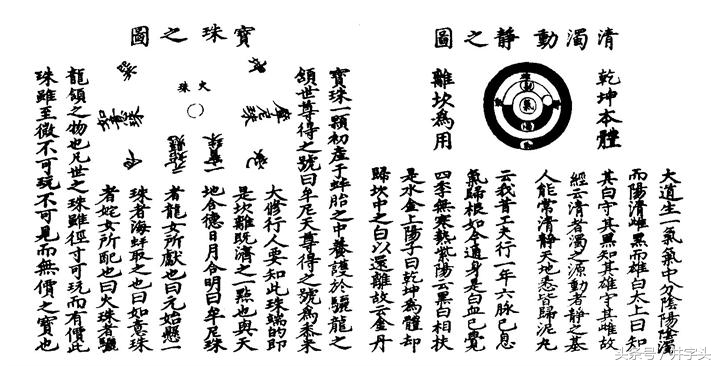 清濁動靜之圖
乾坤本體
離坎為用
氣
大道生一氣氣中分陰陽陰濁
而陽清雌黑而雄白太上曰知
其白守其黑知其雄守其雌故
經云清者濁之源動者靜之基
人能常清靜天地悉皆歸泥丸
云我昔工夫行一年六脉已息
氣歸根如今通身是白血已覺
四季無寒熱紫陽云黑白相扶
是水金上陽子曰乾坤為體却
歸坎中之白以還離故云金丹
寶珠之圖
火珠
牟尼珠
如意珠
寶珠一顆初產于蚌胎之中養護於驪龍之
頷世尊得之號曰牟尼天尊得之號為黍米
大修行人要知此珠端的即
是坎離既濟之一點也與天
地合德日月合明曰牟尼珠
者龍女所獻也曰元始懸一
珠者海蚌取之也曰如意珠
者姹女所配也曰火珠者驪
龍頷之物也凡世之珠雖徑寸可玩而有價此
珠雖至微不可玩不可見而無價之寶也
头条号/井字头